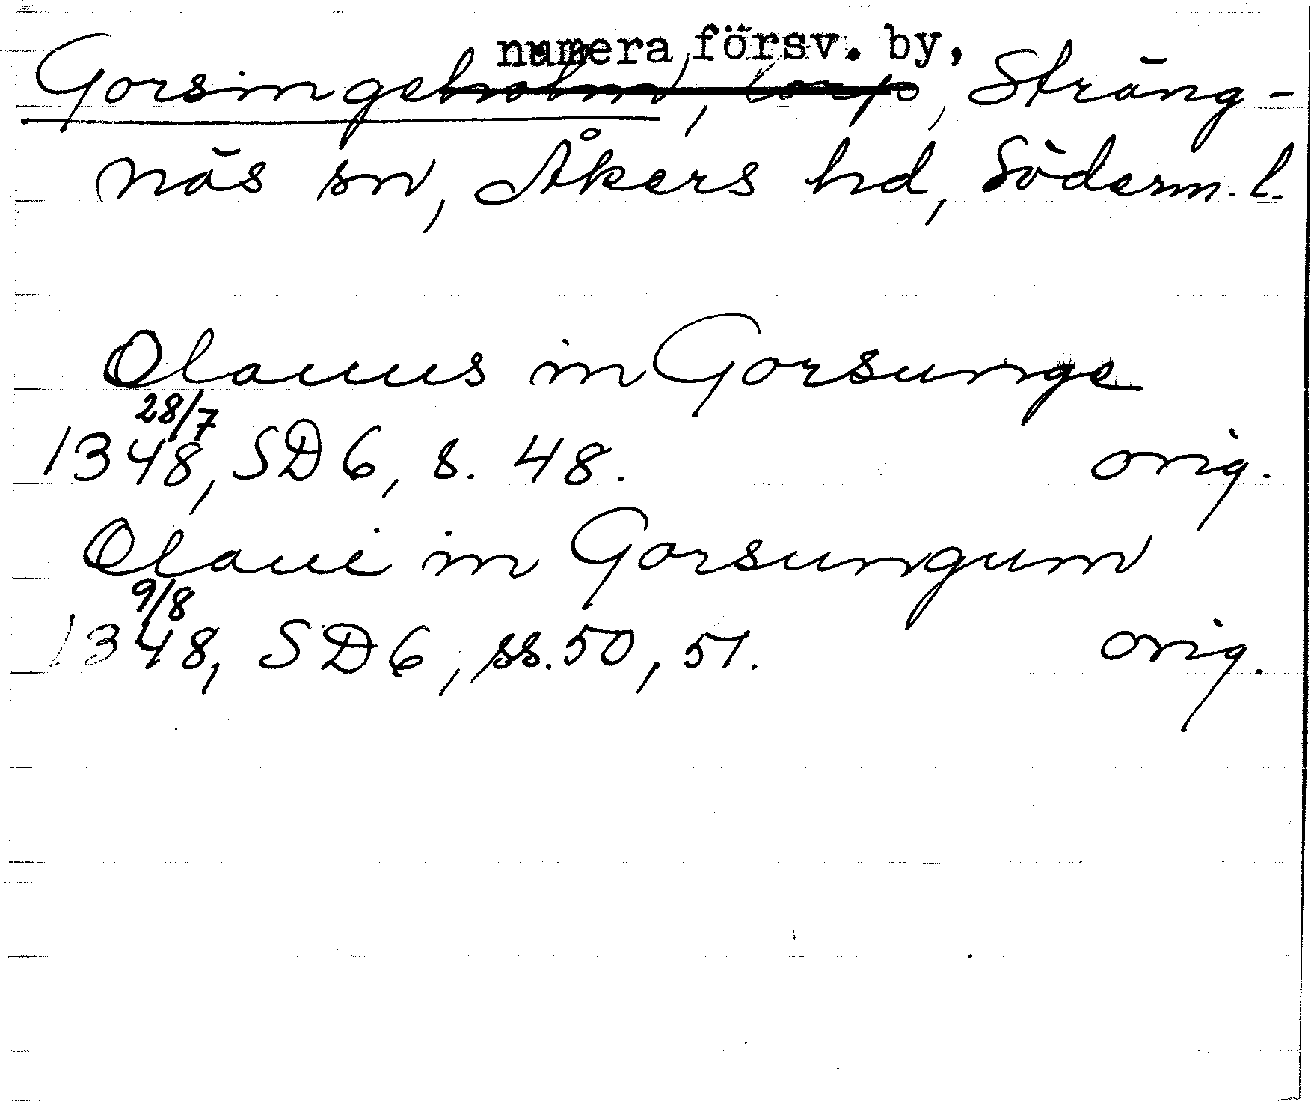 numera försv. by,
Gorsingeholm, torp, Sträng-
näs sn, Åkers hd, Söderm. l.
Olauus in Gorsunge
28/7
1348, SD 6, s. 48. orig.
Olaui in Gorsungum
9/8
1348, SD 6, ss. 50, 51. orig.